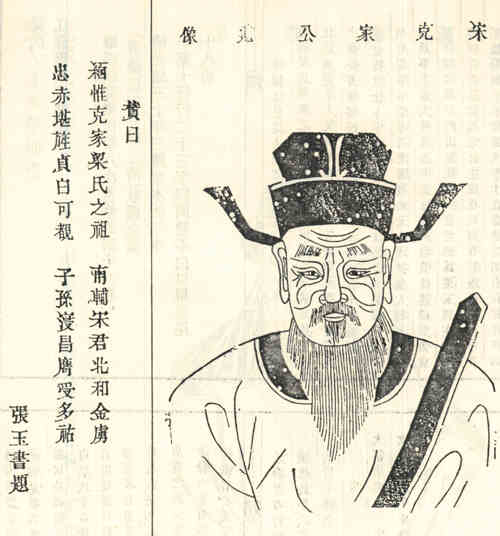 宋克家公遺像
賛曰
緬惟克家梁氏之祖 南輔宋君北和金虜
忠赤堪旌貞白可覩 子孫寖昌膺受多祜
張玉書題